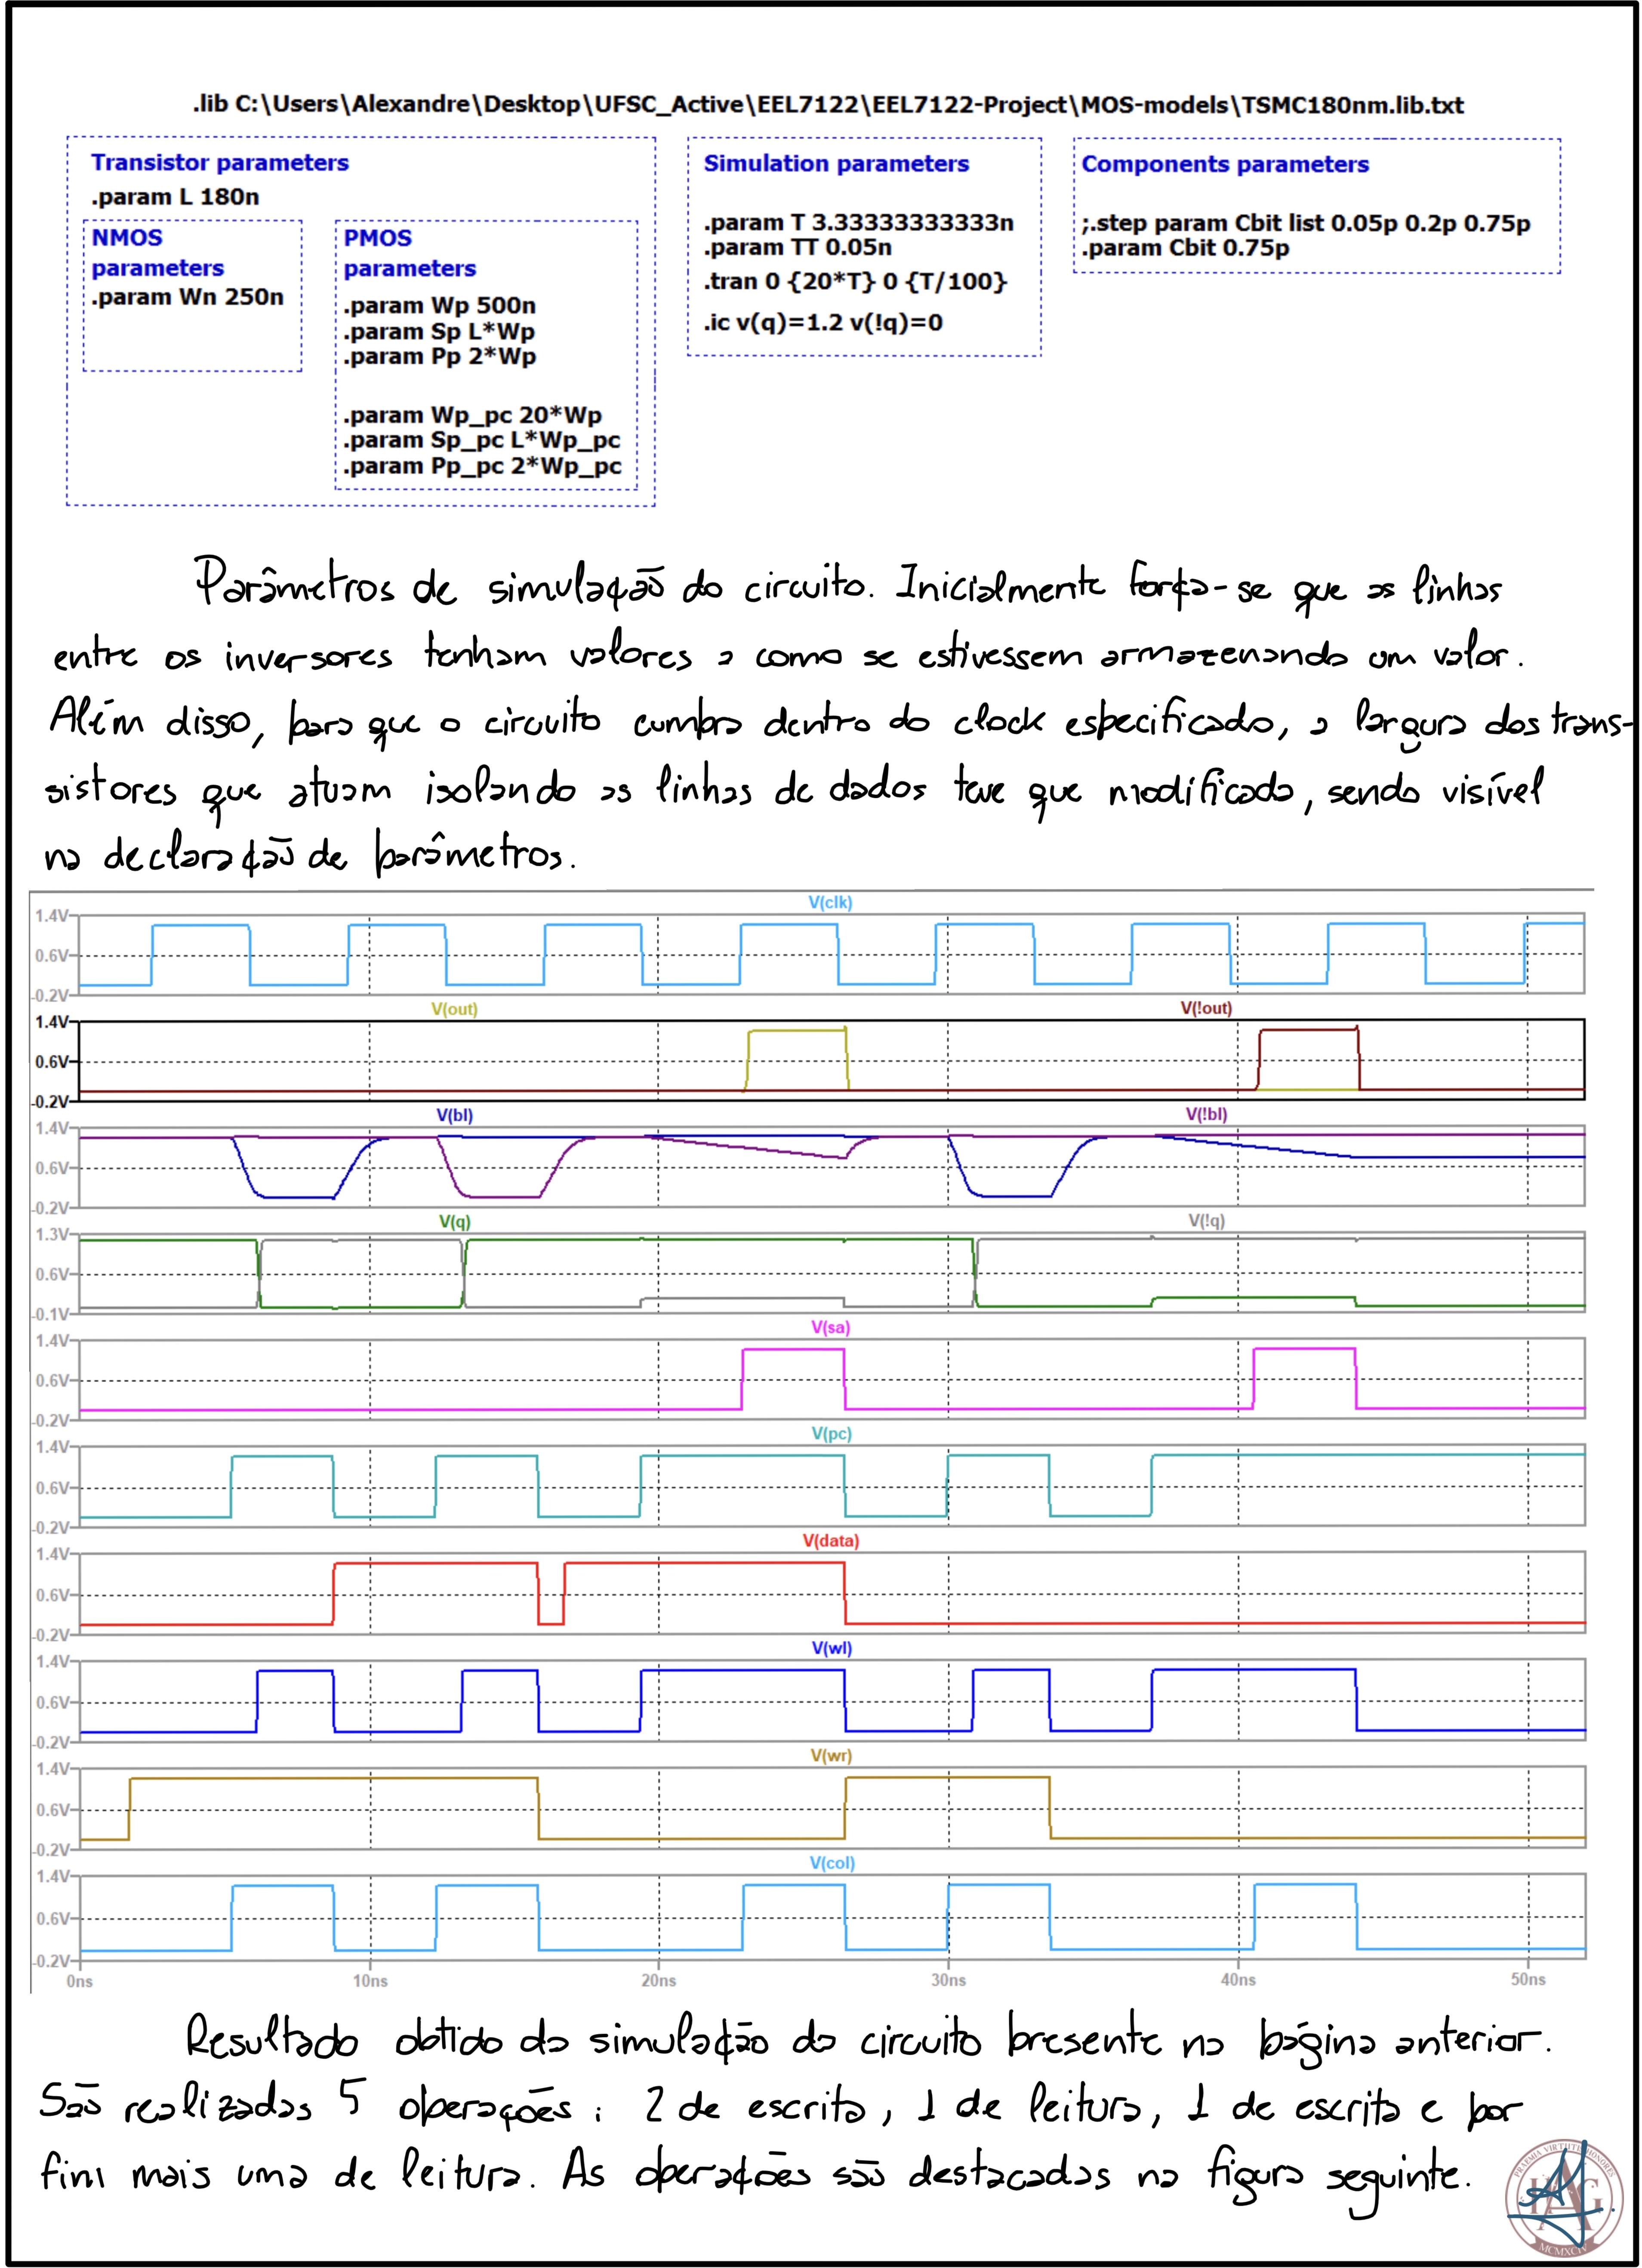 .lib C:\Users\Alexandre\Desktop\UFSC_Active\EEL7122\EEL7122-Project\MOS-models\TSMC180nm.lib.txt
Transistor parameters
.param L 180n
NMOS
parameters
.param Wn 250n
PMOS
parameters
.param Wp 500n
.param Sp L*Wp
.param Pp 2*Wp
.param Wp_pc 20*Wp
.param Sp_pc L*Wp_pc
.param Pp_pc 2*Wp_pc
Simulation parameters
.param T 3.33333333333n
.param TT 0.05n
.tran 0 {20*T} 0 {T/100}
.ic v(q)=1.2 v(!q)=0
Components parameters
;.step param Cbit list 0.05p 0.2p 0.75p
.param Cbit 0.75p
Parâmetros de simulação do circuito. Inicialmente força-se que as linhas
entre os inversores tenham valores a como se estivessem armazenando um valor.
Além disso, para que o circuito cumpra dentro do clock especificado, a largura dos trans-
sistores que atuam isolando as linhas de dados teve que modificada, sendo visível
na declaração de parâmetros.
V(clk)
1.4V
0.6V
-0.2V
V(out) V(!out)
1.4V
0.6V
-0.2V
V(bl) V(!bl)
1.4V
0.6V
-0.2V
V(q) V(!q)
1.3V
0.6V
-0.1V
V(sa)
1.4V
0.6V
-0.2V
V(pc)
1.4V
0.6V
-0.2V
V(data)
1.4V
0.6V
-0.2V
V(wl)
1.4V
0.6V
-0.2V
V(wr)
1.4V
0.6V
-0.2V
V(col)
1.4V
0.6V
-0.2V
0ns 10ns 20ns 30ns 40ns 50ns
Resultado obtido da simulação do circuito presente na página anterior.
São realizadas 5 operações: 2 de escrita, 1 de leitura, 1 de escrita e por
fim mais uma de leitura. As operações são destacadas na figura seguinte.
PRAEMIA VIRTUTIS HONORES
MCMXCIV